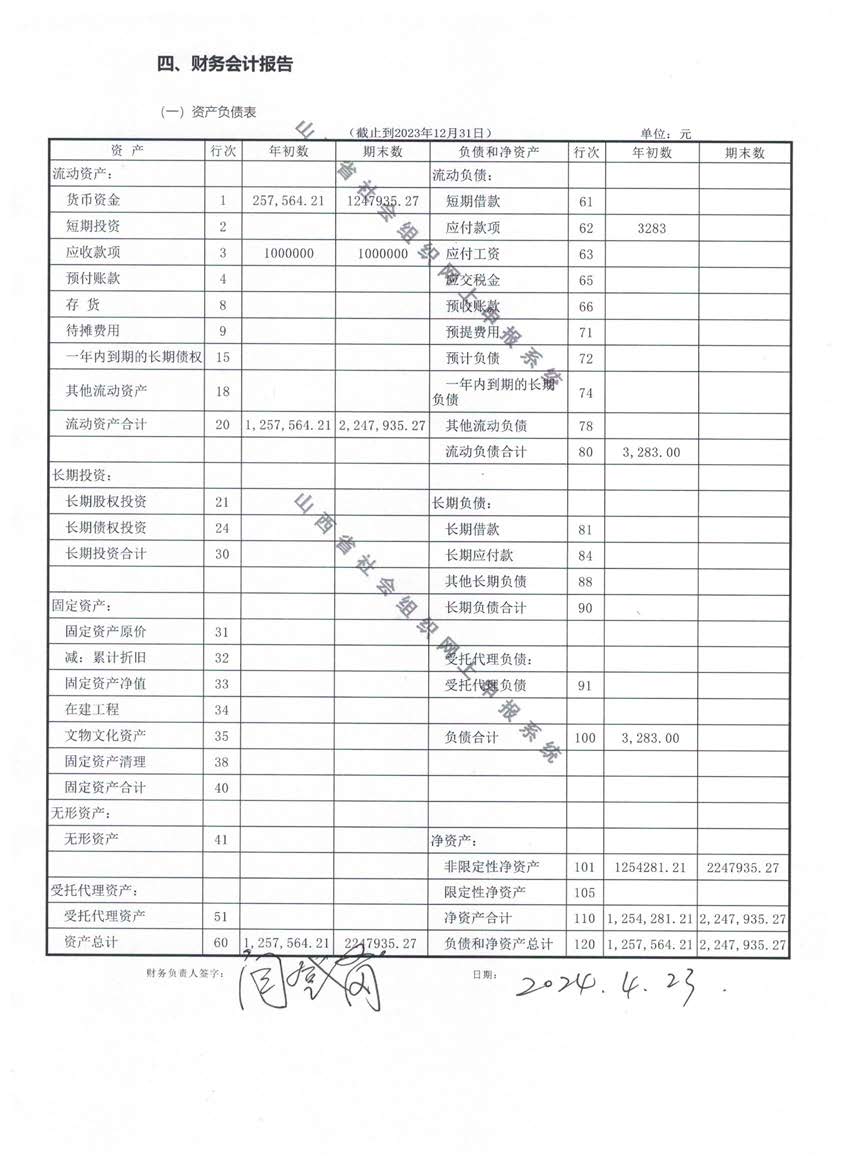 四、财务会计报告
（一）资产负债表
（截止到2023年12月31日） 单位：元
资 产 行次 年初数 期末数 负债和净资产 行次 年初数 期末数
流动资产： 流动负债：
货币资金 1 257,564.21 1247935.27 短期借款 61
短期投资 2 应付款项 62 3283
应收款项 3 1000000 1000000 应付工资 63
预付账款 4 应交税金 65
存 货 8 预收账款 66
待摊费用 9 预提费用 71
一年内到期的长期债权 15 预计负债 72
其他流动资产 18 一年内到期的长期负债 74
流动资产合计 20 1,257,564.21 2,247,935.27 其他流动负债 78
流动负债合计 80 3,283.00
长期投资：
长期股权投资 21 长期负债：
长期债权投资 24 长期借款 81
长期投资合计 30 长期应付款 84
其他长期负债 88
固定资产： 长期负债合计 90
固定资产原价 31
减：累计折旧 32 受托代理负债：
固定资产净值 33 受托代理负债 91
在建工程 34
文物文化资产 35 负债合计 100 3,283.00
固定资产清理 38
固定资产合计 40
无形资产：
无形资产 41 净资产：
非限定性净资产 101 1254281.21 2247935.27
受托代理资产： 限定性净资产 105
受托代理资产 51 净资产合计 110 1,254,281.21 2,247,935.27
资产总计 60 1,257,564.21 2247935.27 负债和净资产总计 120 1,257,564.21 2,247,935.27
财务负责人签字： 日期： 2024.4.23.
山西省社会组织网上申报系统
山西省社会组织网上申报系统